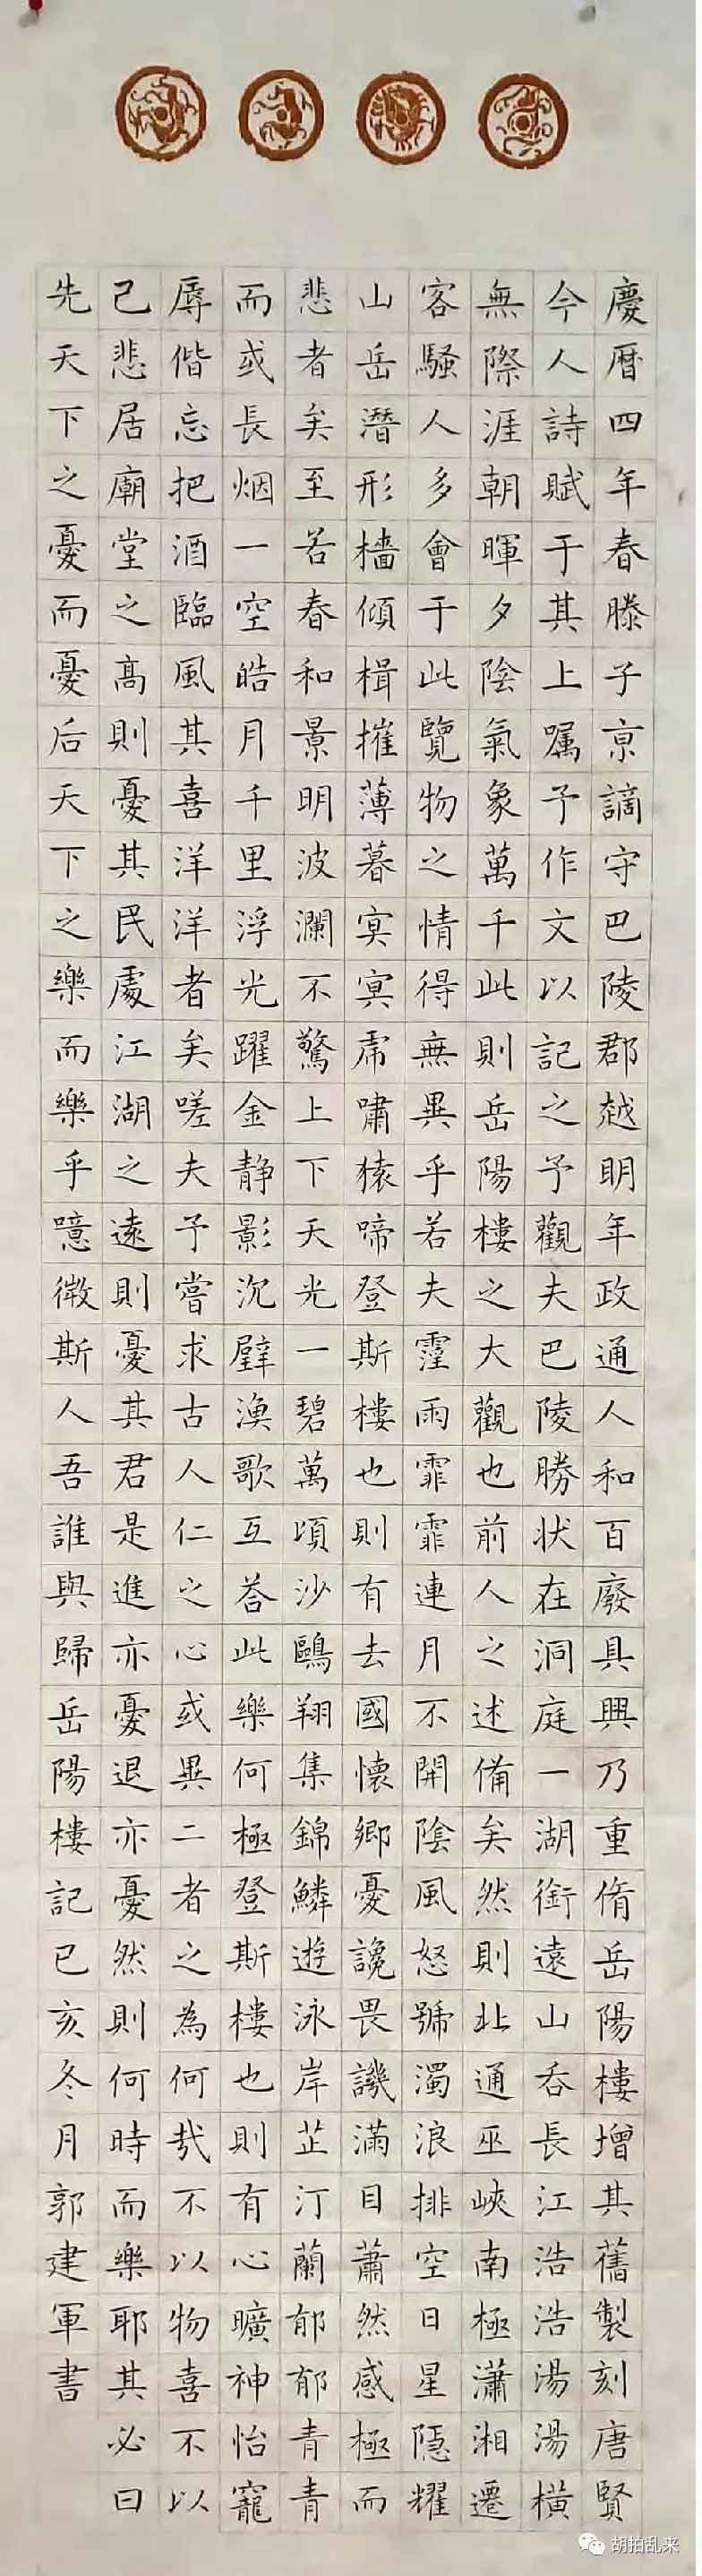 慶曆四年春滕子京謫守巴陵郡越明年政通人和百廢具興乃重脩岳陽樓增其舊製刻唐賢
今人詩賦于其上嘱予作文以記之予觀夫巴陵勝状在洞庭一湖銜遠山吞長江浩浩湯湯横
無際涯朝暉夕陰氣象萬千此則岳陽樓之大觀也前人之述備矣然則北通巫峽南極瀟湘遷
客騷人多會于此覽物之情得無異乎若夫霪雨霏霏連月不開陰風怒號濁浪排空日星隱耀
山岳潛形檣傾楫摧薄暮冥冥虎嘯猿啼登斯樓也則有去國懷鄉憂讒畏譏滿目蕭然感極而
悲者矣至若春和景明波瀾不驚上下天光一碧萬頃沙鷗翔集錦鱗遊泳岸芷汀蘭郁郁青青
而或長烟一空皓月千里浮光躍金静影沉璧漁歌互答此樂何極登斯樓也則有心曠神怡寵
辱偕忘把酒臨風其喜洋洋者矣嗟夫予嘗求古人仁之心或異二者之為何哉不以物喜不以
己悲居廟堂之高則憂其民處江湖之遠則憂其君是進亦憂退亦憂然則何時而樂耶其必曰
先天下之憂而憂后天下之樂而樂乎噫微斯人吾誰與歸岳陽樓記已亥冬月郭建軍書
胡拍乱来